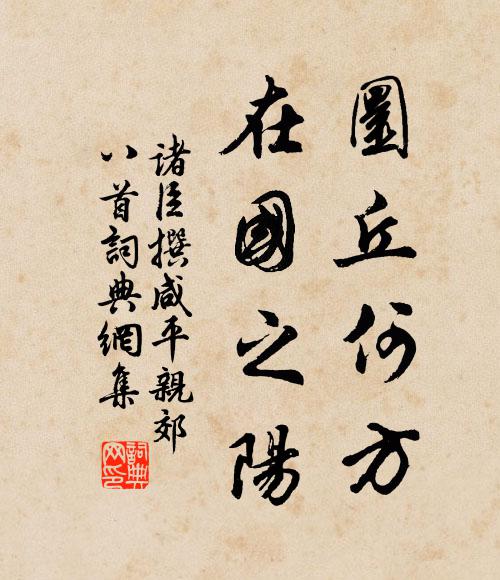 圜丘何方
在國之陽
諸臣撰咸平親郊
八首詞典網集
詞典網印